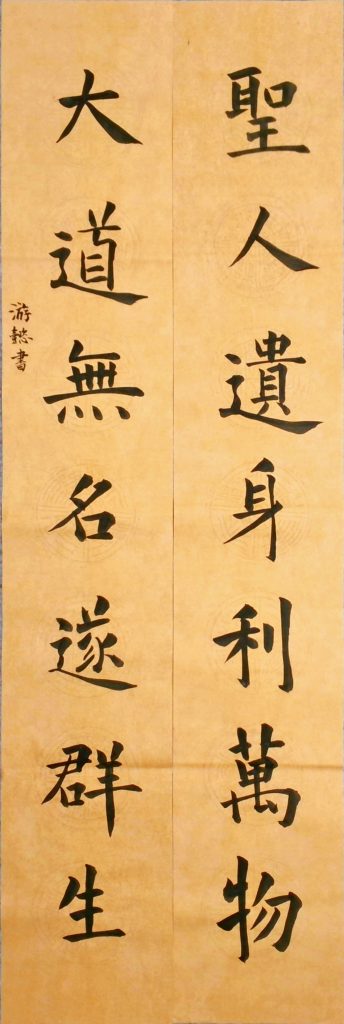 聖人遺身利萬物
大道無名遂群生
游懿書